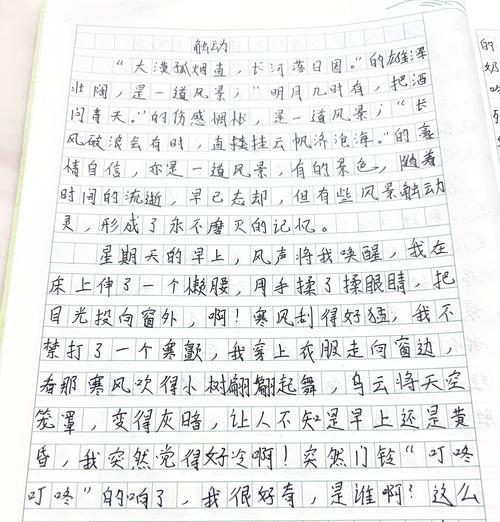 触动
“大漠孤烟直，长河落日圆。”的雄浑
壮阔，是一道风景；“明月几时有，把酒
问青天。”的伤感惆怅，是一道风景；“长
风破浪会有时，直接挂云帆济沧海。”的豪
情自信，亦是一道风景，有的景色，随着
时间的流逝，早已忘却，但有些风景触动
灵，形成了永不磨灭的记忆。
星期天的早上，风声将我唤醒，我在
床上伸了一个懒腰，用手揉了揉眼睛，把
目光投向窗外，啊！寒风刮得好猛，我不
禁打了一个寒颤，我穿上衣服走向窗边，
看那寒风吹得小树翩翩起舞，乌云将天空
笼罩，变得灰暗，让人不知是早上还是黄
昏，我突然觉得好冷啊！突然门铃“叮咚
叮咚”的响了，我很好奇，是谁啊？这么
的
奶